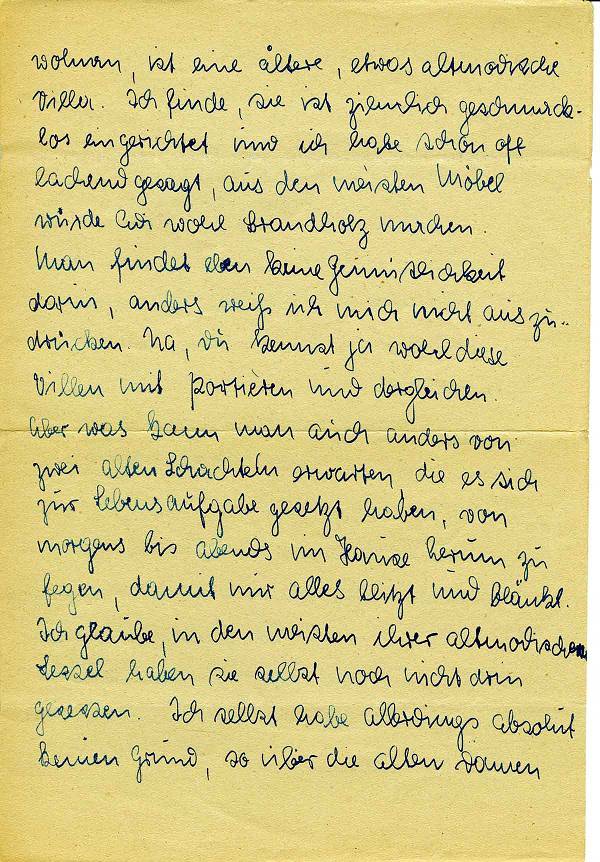 wohnen, ist eine ältere, etwas altmodische
Villa. Ich finde, sie ist ziemlich geschmack-
los eingerichtet und ich habe schon oft
lachend gesagt, aus den meisten Möbel
würde ich wohl Brandholz machen.
Man findet eben keine Gemütlichkeit
darin, anders weiß ich mich nicht auszu-
drücken. Na, Du kennst ja wohl diese
Villen mit Portièren und dergleichen.
Aber was kann man auch anders von
zwei alten Schachteln erwarten, die es sich
zur Lebensaufgabe gesetzt haben, von
morgens bis abends im Hause herum zu
fegen, damit nur alles blitzt und blänkt.
Ich glaube, in den meisten ihrer altmodischen
Sessel haben sie selbst noch nicht drin
gesessen. Ich selbst habe allerdings absolut
keinen Grund, so über die alten Damen